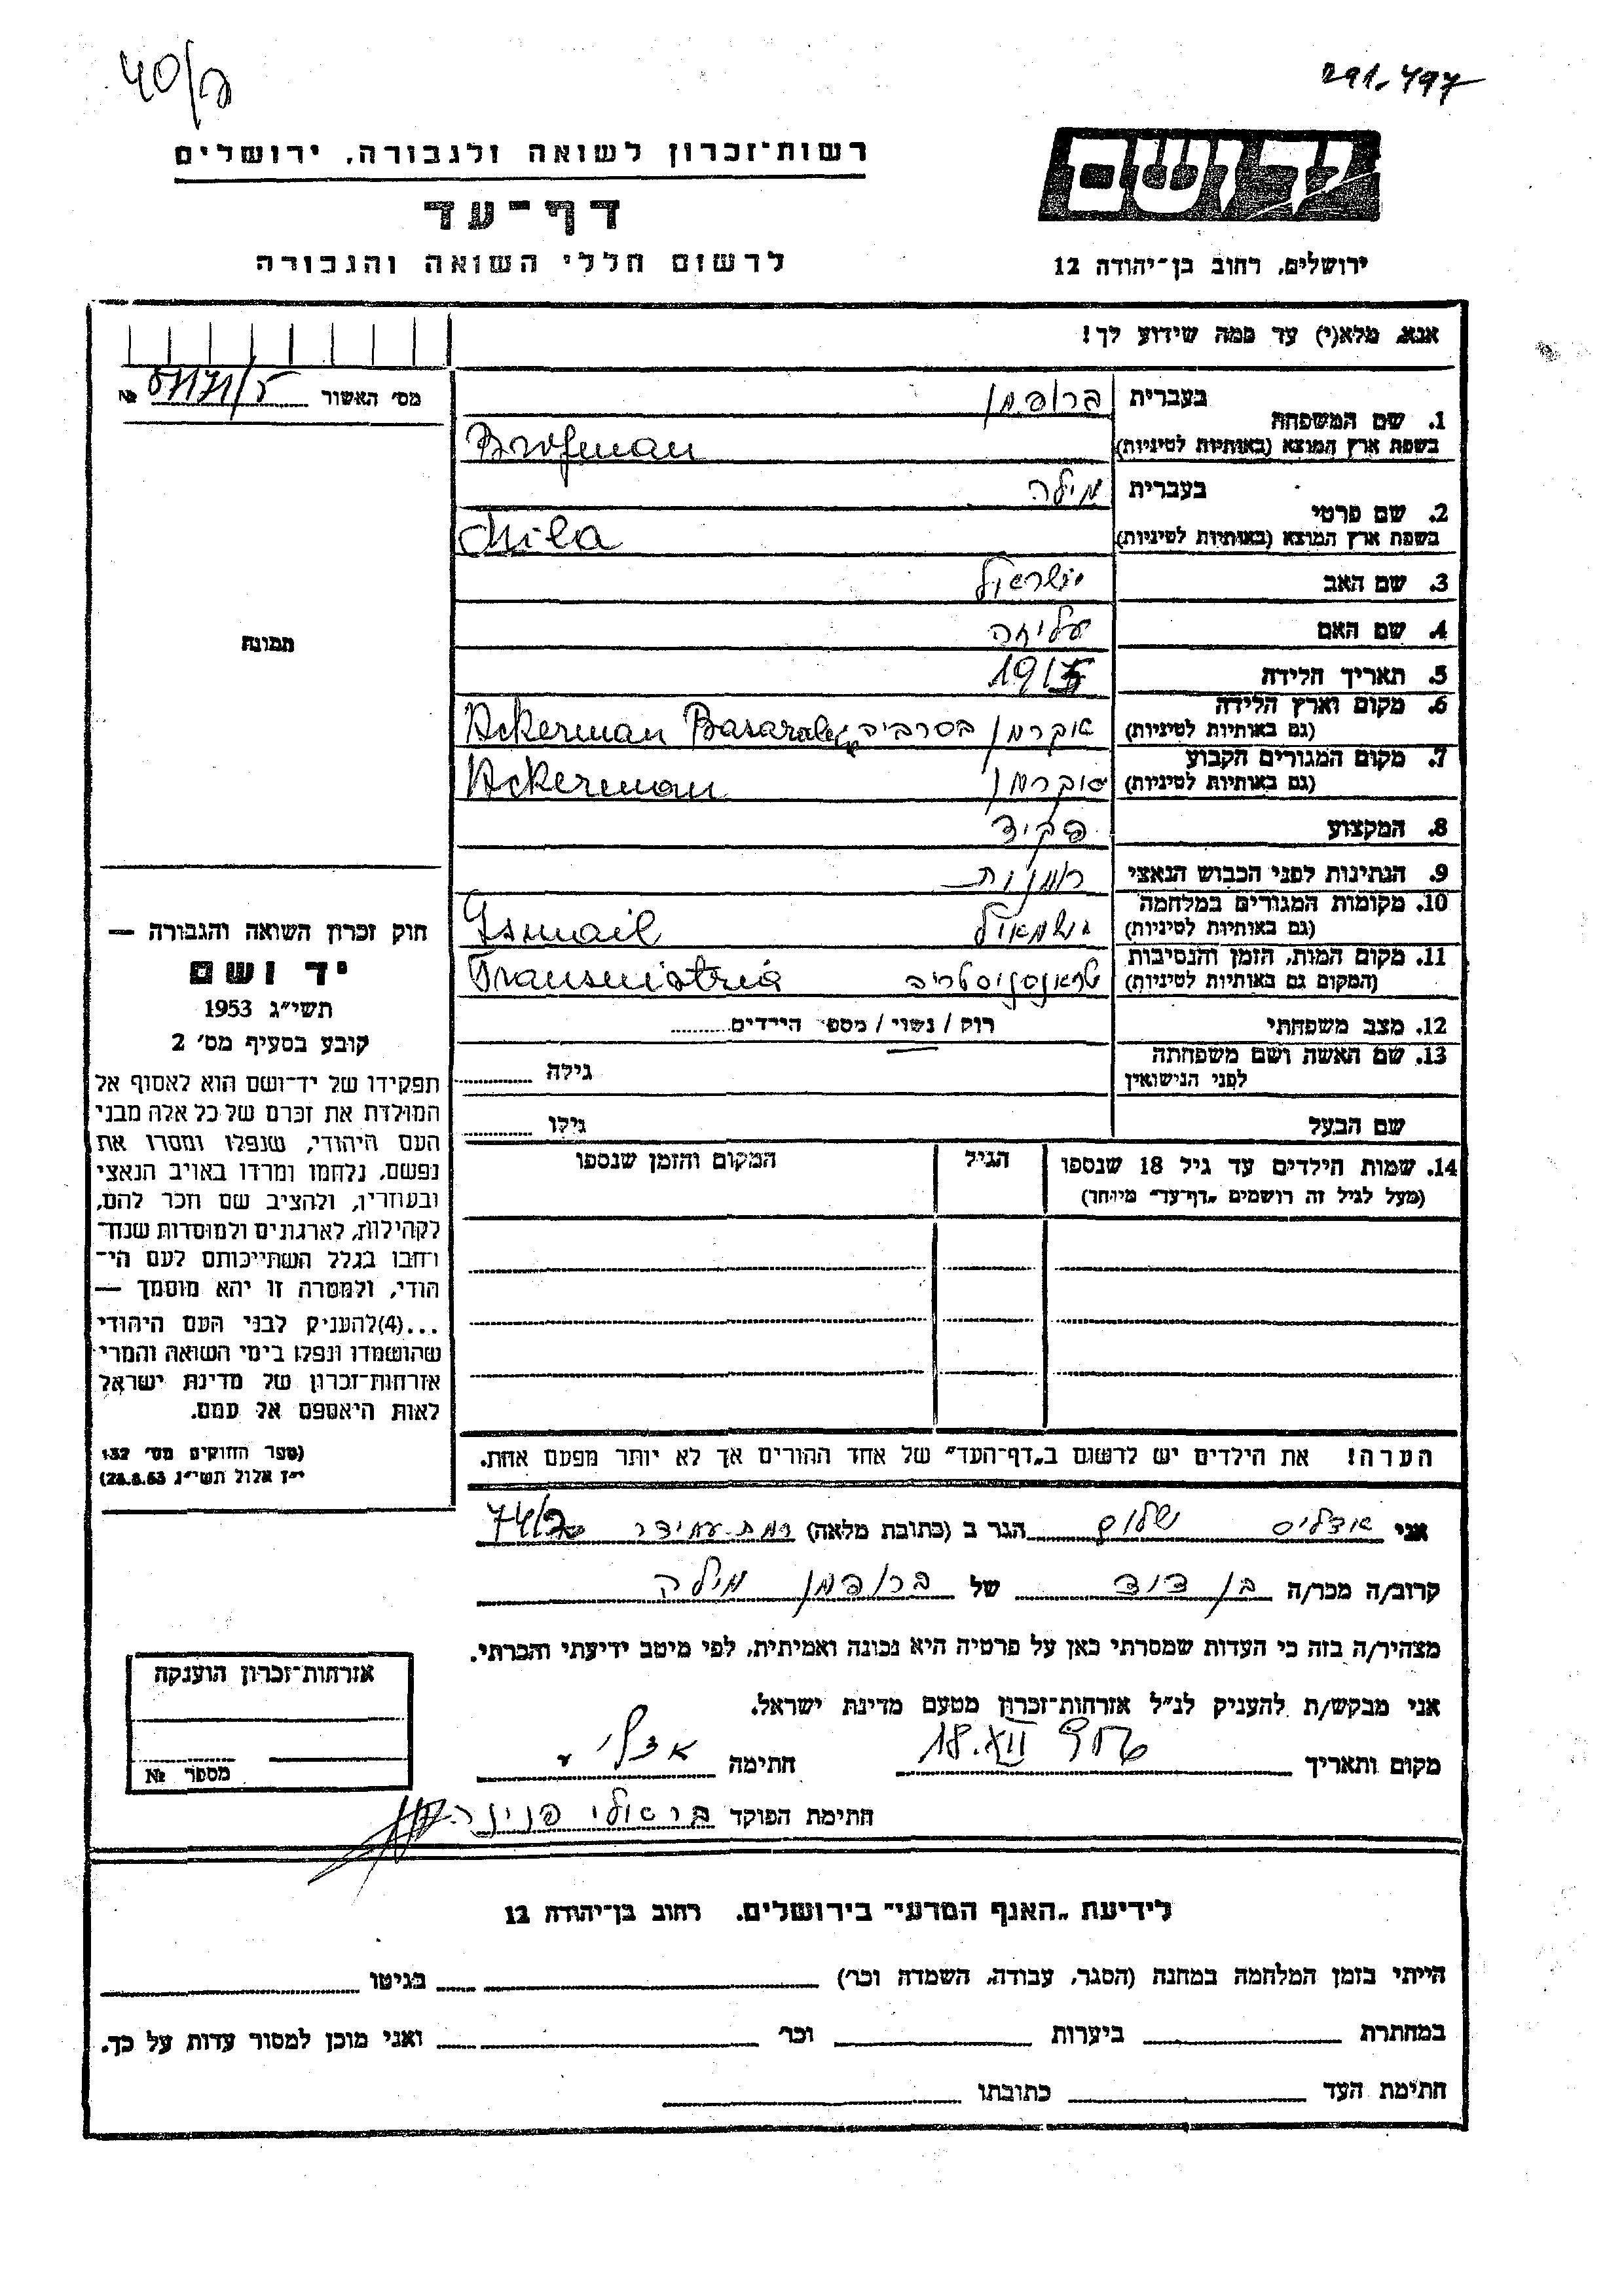 40/ק
291.497
רשות־זכרון לשואה ולגבורה, ירושלים
דף־עד
לרשום חללי השואה והגבורה
יד ושם
ירושלים, רחוב בן־יהודה 12
אנא, מלא(י) עד כמה שידוע לך!
מס׳ האשור №
1. שם המשפחה בעברית ברופמן
בשפת ארץ המוצא (באותיות לטיניות) Brofman
2. שם פרטי בעברית מילה
בשפת ארץ המוצא (באותיות לטיניות) Mila
3. שם האב ישראל
4. שם האם
5. תאריך הלידה
6. מקום וארץ הלידה
(גם באותיות לטיניות) אקרמן בסרביה Ackerman
7. מקום המגורים הקבוע
(גם באותיות לטיניות) אקרמן Ackerman
8. המקצוע פקיד
9. הנתינות לפני הכבוש הנאצי
10. מקומות המגורים במלחמה
(גם באותיות לטיניות) ישמאיל Ismail
11. מקום המות, הזמן והנסיבות
(המקום גם באותיות לטיניות) טראנסניסטריה Transnistria
12. מצב משפחתי רווק / נשוי / מספר הילדים
13. שם האשה ושם משפחתה
לפני הנישואין גילה
שם הבעל גילו
14. שמות הילדים עד גיל 18 שנספו הגיל המקום והזמן שנספו
(מעל לגיל זה רושמים „דף־עד״ מיוחד)
הערה! את הילדים יש לרשום ב„דף־העד״ של אחד ההורים אך לא יותר מפעם אחת.
תמונה
חוק זכרון השואה והגבורה —
יד ושם
תשי״ג 1953
קובע בסעיף מס׳ 2
תפקידו של יד־ושם הוא לאסוף אל
המולדת את זכרם של כל אלה מבני
העם היהודי, שנפלו ומסרו את
נפשם, נלחמו ומרדו באויב הנאצי
ובעוזריו, ולהציב שם וזכר להם,
לקהילות, לארגונים ולמוסדות שנח־
רחבו בגלל השתייכותם לעם הי־
הודי, ולמטרה זו יהא מוסמך —
...(4)להעניק לבני העם היהודי
שהושמדו ונפלו בימי השואה והמרי
אזרחות־זכרון של מדינת ישראל
לאות היאספם אל עמם.
(ספר החוקים מס׳ 132
י״ז אלול תשי״ג 28.8.53)
אני שלום הגר ב (כתובת מלאה) רמת-עמידר
קרוב/ה מכר/ה בן דוד של ברופמן מילה
מצהיר/ה בזה כי העדות שמסרתי כאן על פרטיה היא נכונה ואמיתית, לפי מיטב ידיעתי והכרתי.
אני מבקש/ת להעניק לנ״ל אזרחות־זכרון מטעם מדינת ישראל.
מקום ותאריך 18.XII חתימה
חתימת הפוקד פנינה
אזרחות־זכרון הוענקה
מספר №
לידיעת „האגף המדעי״ בירושלים. רחוב בן־יהודה 12
הייתי בזמן המלחמה במחנה (הסגר, עבודה, השמדה וכר׳) בגיטו
במחתרת ביערות וכר׳ ואני מוכן למסור עדות על כך.
חתימת העד כתובתו